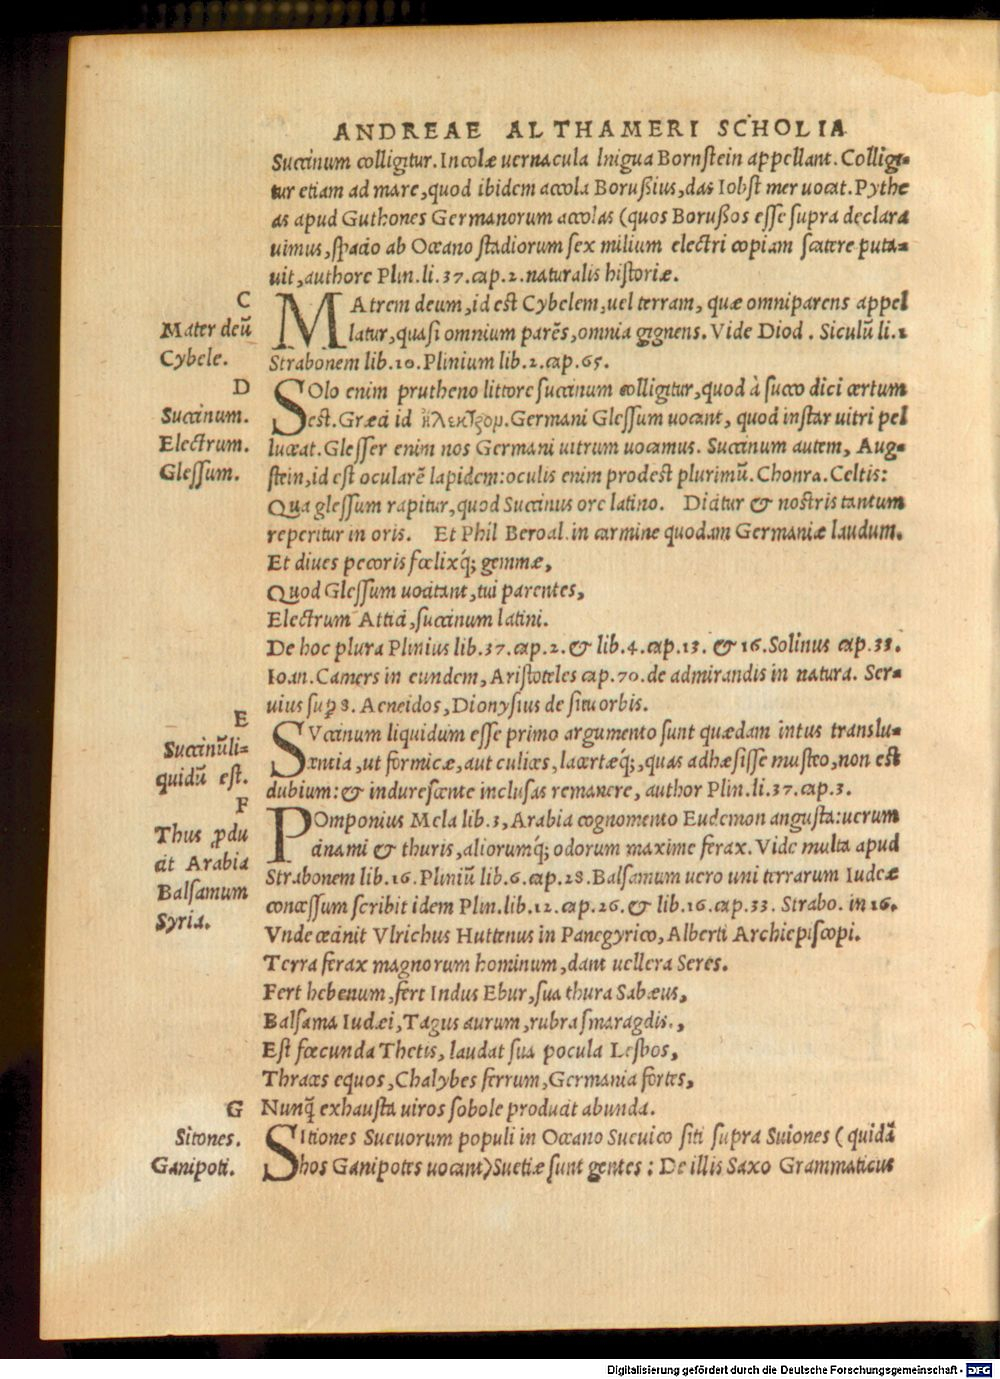 ANDREAE ALTHAMERI SCHOLIA
Succinum colligitur. Incolæ uernacula lnigua Bornstein appellant. Collig=
tur etiam ad mare, quod ibidem accola Borußius, das Iobst mer uocat. Pythe
as apud Guthones Germanorum accolas (quos Borußos esse supra declara
uimus, spacio ab Oceano stadiorum sex milium electri copiam scatere puta=
uit, authore Plin. li. 37. cap. 2. naturalis historiæ.
C
Mater deū
Cybele.
MAtrem deum, id est Cybelem, uel terram, quæ omniparens appel
latur, quasi omnium parēs, omnia gignens. Vide Diod. Siculū li. 1
Strabonem lib. 10. Plinium lib. 2. cap. 65.
D
Succinum.
Electrum.
Glessum.
SOlo enim prutheno littore succinum colligitur, quod à succo dici certum
est. Græci id ἤλεκτρομ. Germani Glessum uocant, quod instar uitri pel
luceat. Glesser enim nos Germani uitrum uocamus. Succinum autem, Aug=
stein, id est ocularē lapidem: oculis enim prodest plurimū. Chonra. Celtis:
Qua glessum rapitur, quod Succinus ore latino. Dicitur & nostris tantum
reperitur in oris. Et Phil Beroal. in carmine quodam Germaniæ laudum.
Et diues pecoris fœlixq́; gemmæ,
Quod Glessum uocitant, tui parentes,
Electrum Attici, succinum latini.
De hoc plura Plinius lib. 37. cap. 2. & lib. 4. cap. 13. & 16. Solinus cap. 33.
Ioan. Camers in eundem, Aristoteles cap. 70. de admirandis in natura. Ser=
uius sup̱ 8. Aeneidos, Dionysius de situ orbis.
E
Succinūli=
quidū est.
SVccinum liquidum esse primo argumento sunt quædam intus translu=
centia, ut formicæ, aut culices, lacertæq́;, quas adhæsisse musteo, non est
dubium: & indurescente inclusas remanere, author Plin. li. 37. cap. 3.
F
Thus ꝓdu
cit Arabia
Balsamum
Syria.
POmponius Mela lib. 3, Arabia cognomento Eudemon angusta: uerum
cinami & thuris, aliorumq́; odorum maxime ferax. Vide multa apud
Strabonem lib. 16. Pliniū lib. 6. cap. 28. Balsamum uero uni terrarum Iudeæ
concessum scribit idem Plin. lib. 12. cap. 26. & lib. 16. cap. 33. Strabo. in 16.
Vnde cecinit Vlrichus Huttenus in Panegyrico, Alberti Archiepiscopi.
Terra ferax magnorum hominum, dant uellera Seres.
Fert hebenum, fert Indus Ebur, sua thura Sabæus,
Balsama Iudæi, Tagus aurum, rubra smaragdis.,
Est fœcunda Thetis, laudat sua pocula Lesbos,
Thraces equos, Chalybes ferrum, Germania fortes,
Nunq̄ exhausta uiros sobole producit abunda.
G
Sitones.
Ganipoti.
SItiones Sueuorum populi in Oceano Sueuico siti supra Suiones (quidā
hos Ganipotes uocant) Suetiæ sunt gentes: De illis Saxo Grammaticus
Digitalisierung gefördert durch die Deutsche Forschungsgemeinschaft - DFG